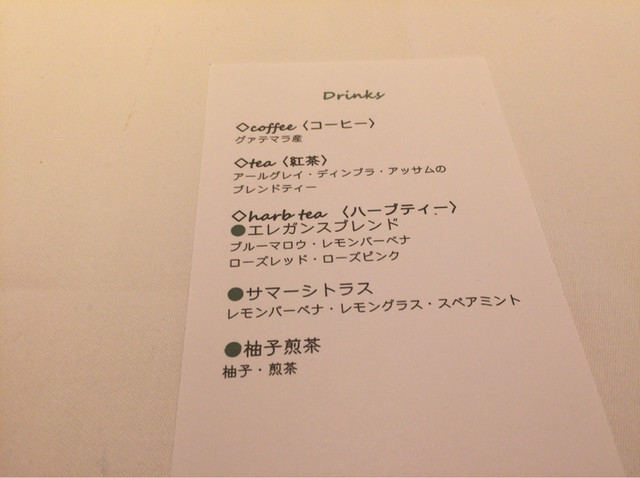 Drinks
◇coffee〈コーヒー〉
グァテマラ産
◇tea〈紅茶〉
アールグレイ・ディンブラ・アッサムの
ブレンドティー
◇harb tea 〈ハーブティー〉
●エレガンスブレンド
ブルーマロウ・レモンバーベナ
ローズレッド・ローズピンク
●サマーシトラス
レモンバーベナ・レモングラス・スペアミント
●柚子煎茶
柚子・煎茶